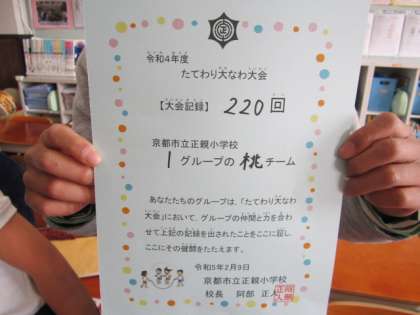 令和4年度
たてわり大なわ大会
【大会記録】 220回
京都市立正親小学校
1グループの桃チーム
あなたたちのグループは、「たてわり大なわ
大会」において、グループの仲間と力を合わ
せて上記の記録を出されたことをここに証し、
ここにその健闘をたたえます。
令和5年2月9日
京都市立正親小学校
校長 阿部 正人